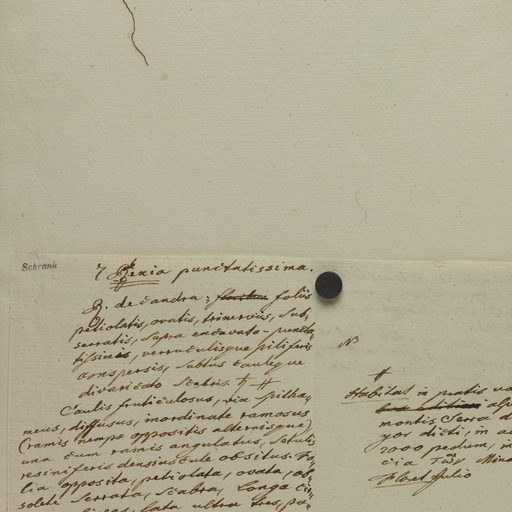 Schrank
7 Rhexia punctatissima.
R. decandra; foliis
petiolatis, ovatis, trinerviis, sub-
serratis, supra excavato-puncta-
tissimis, verruculisque piliferis
conspersis, subtus cauleque
divaricato scabris. ♄ #
Caulis fruticulosus, vix spitha-
meus, diffusus, inordinate ramosus
(ramis nempe oppositis alternisque),
una cum ramis angulatus, setulis
resiniferis densiuscule obsitus. Fo-
lia opposita, petiolata, ovata, ob-
solete serrata, scabra, longa
lineas, lata ultra tres, pa-
N
#
Habitat in pratis
montis Serra d
yor dicti, in
2000 pedum, in
cia Mina
Floret Julio